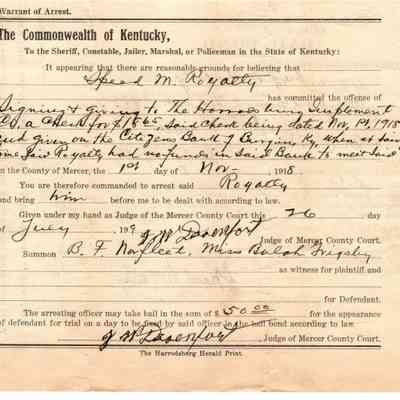 Warrant of Arrest.
The Commonwealth of Kentucky,
To the Sheriff, Constable, Jailer, Marshal, or Policeman in the State of Kentucky:
It appearing that there are reasonable grounds for believing that
Speed M. Royalty
has committed the offense of
Signing & giving to The Harrodsburg Implement
Co a Check for $1565, said check being dated Nov, 1st, 1918
and given on the Citizens Bank of Burgin, Ky, when at said
time said Royalty had no funds in said Bank to meet said
in the County of Mercer, the 1st day of Nov- 1918
You are therefore commanded to arrest said Royalty
and bring him before me to be dealt with according to law.
Given under my hand as Judge of the Mercer County Court this 26 day
of July 191
J W Davenport Judge of Mercer County Court.
Summon B. F. Norfleet, Miss Grigsby
as witness for plaintiff and
for Defendant.
The arresting officer may take bail in the sum of $50.00 for the appearance
of defendant for trial on a day to be fixed by said officer in the bail bond according to law
J W Davenport Judge of Mercer County Court.
The Harrodsburg Herald Print.